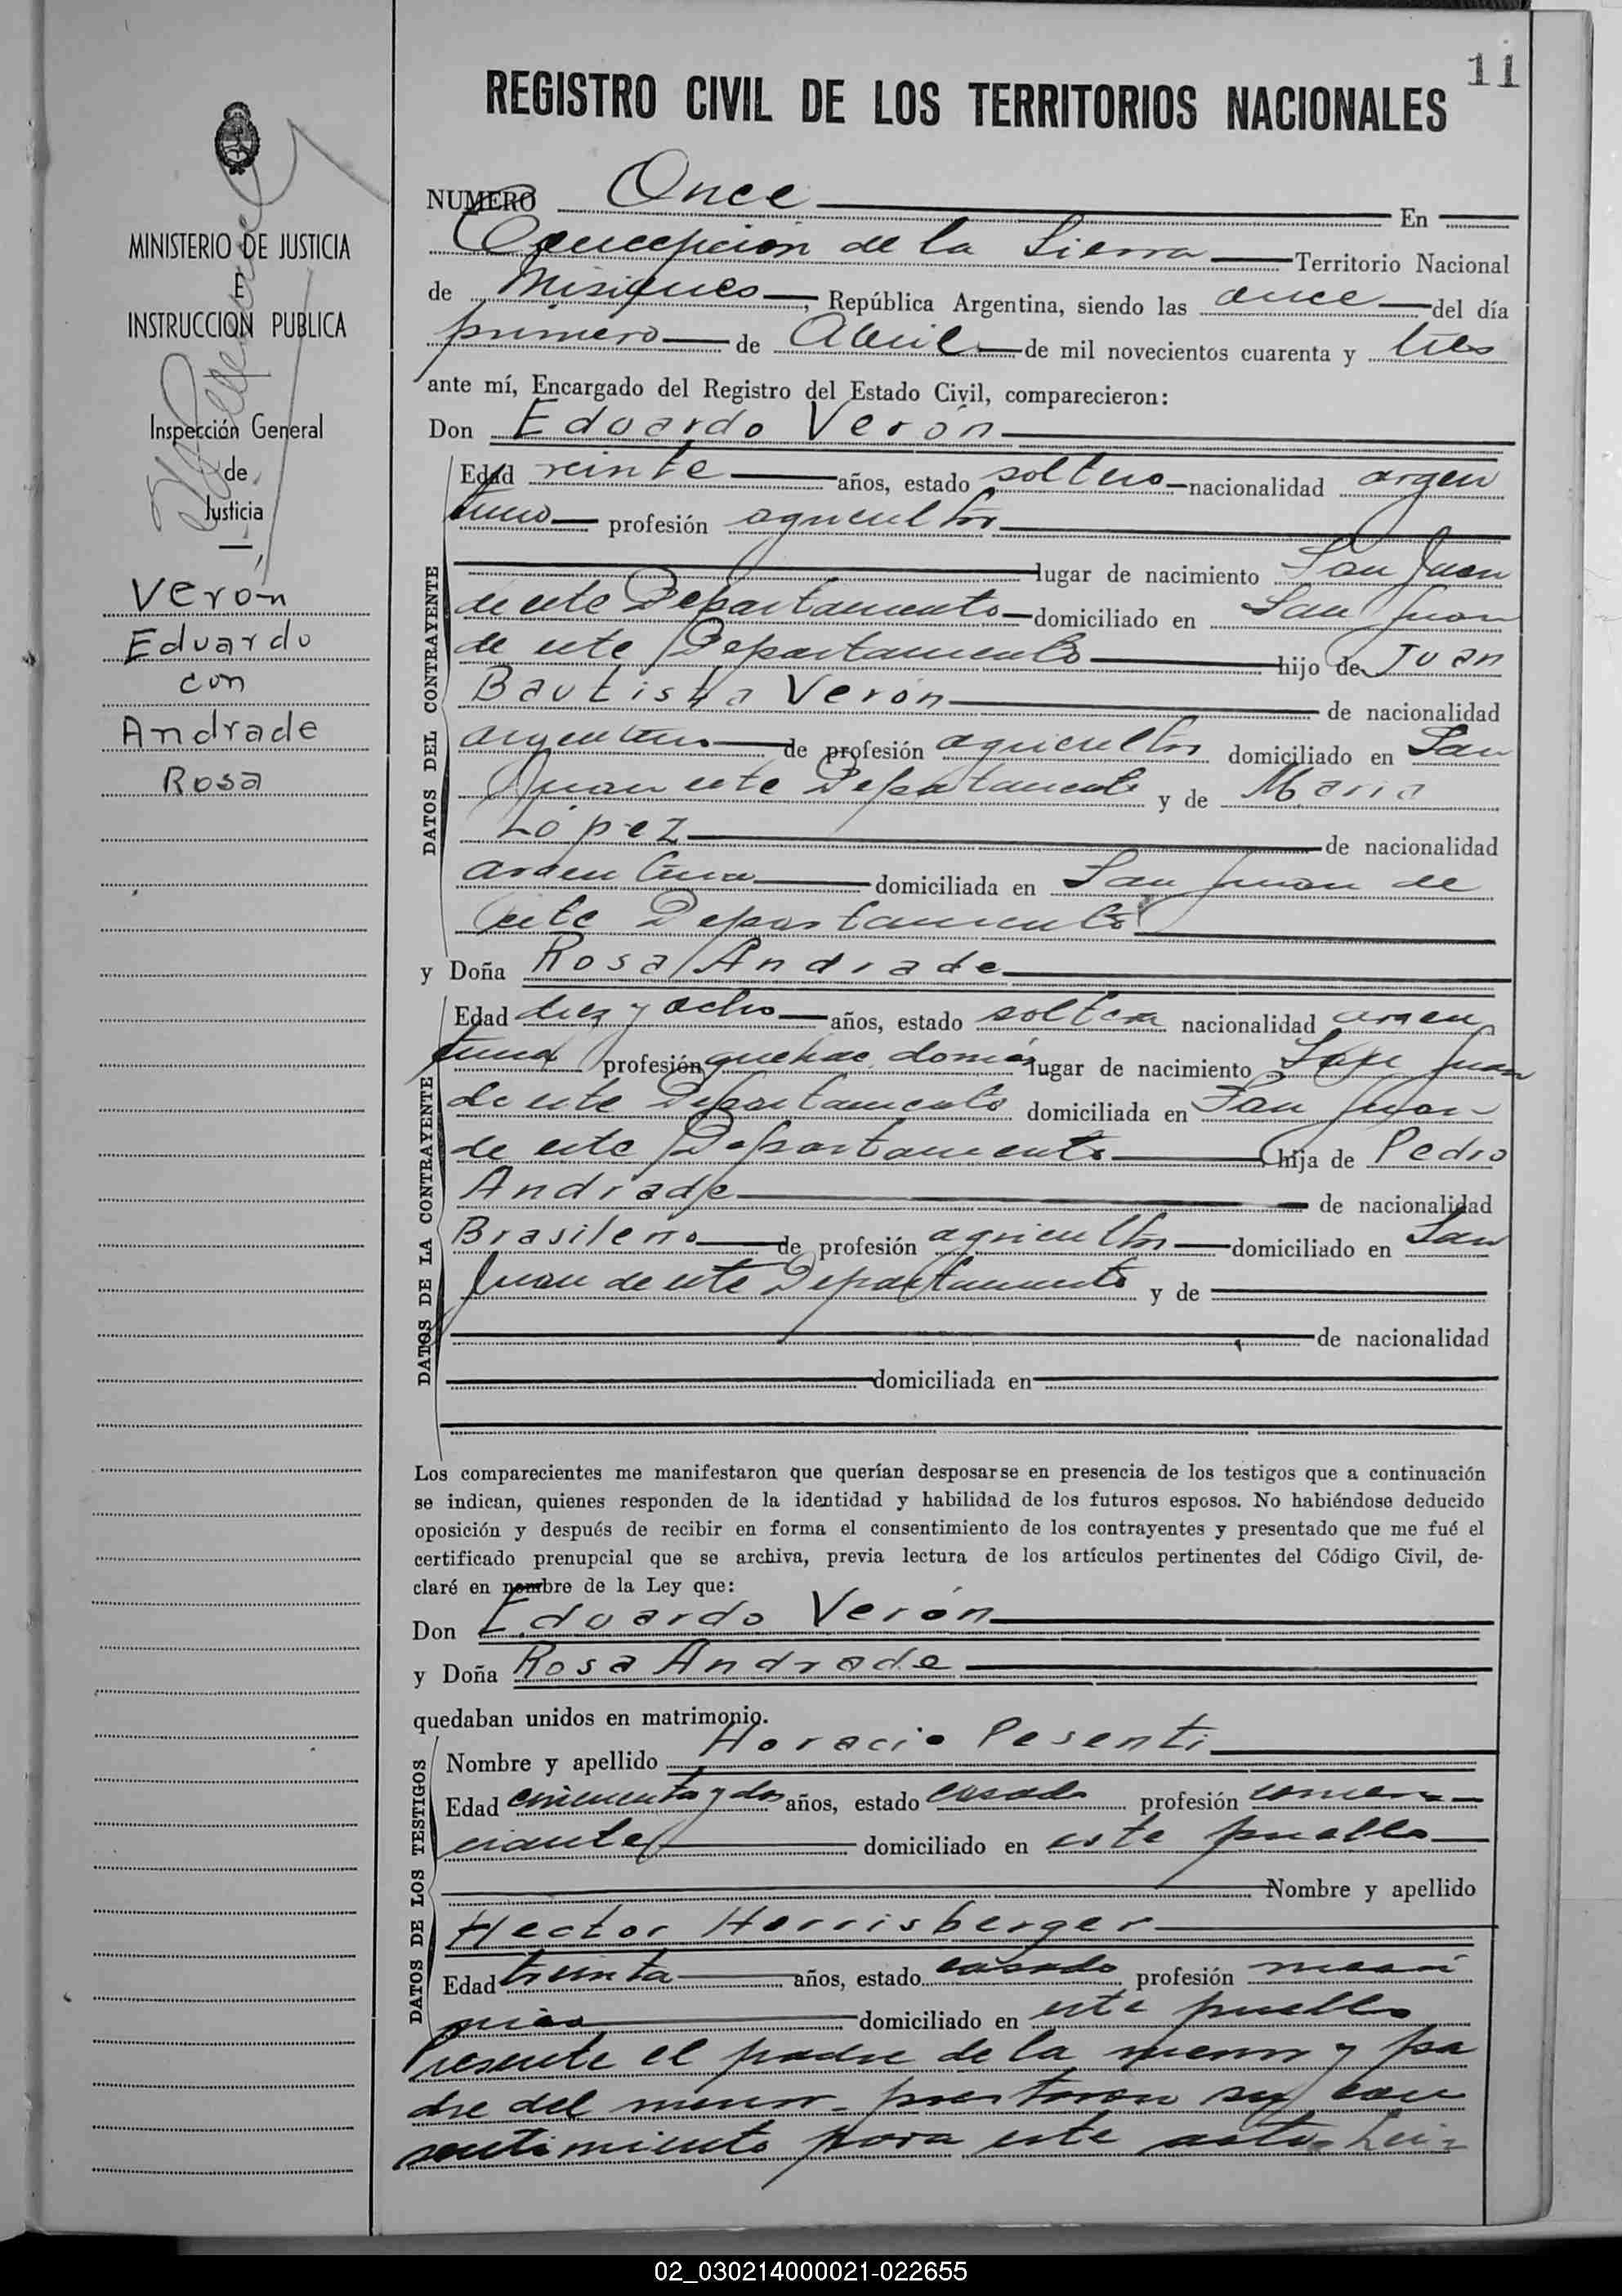 11
REGISTRO CIVIL DE LOS TERRITORIOS NACIONALES
MINISTERIO DE JUSTICIA
E
INSTRUCCION PUBLICA
Inspección General
de
Justicia
Verón
Eduardo
con
Andrade
Rosa
NUMERO Once En
Concepción de la Sierra Territorio Nacional
de Misiones, República Argentina, siendo las once del día
primero de Abril de mil novecientos cuarenta y tres
ante mí, Encargado del Registro del Estado Civil, comparecieron:
Don Eduardo Verón
DATOS DEL CONTRAYENTE
Edad veinte años, estado soltero nacionalidad argen
tino profesión agricultor
lugar de nacimiento San Juan
de este Departamento domiciliado en San Juan
de este Departamento hijo de Juan
Bautista Verón de nacionalidad
argentino de profesión agricultor domiciliado en San
Juan este Departamento y de Maria
López de nacionalidad
argentina domiciliada en San Juan de
este Departamento
y Doña Rosa Andrade
DATOS DE LA CONTRAYENTE
Edad diez y ocho años, estado soltera nacionalidad argen
tina profesión quehac. domés lugar de nacimiento San Juan
de este Departamento domiciliada en San Juan
de este Departamento hija de Pedro
Andrade de nacionalidad
Brasileño de profesión agricultor domiciliado en San
Juan de este Departamento y de
de nacionalidad
domiciliada en
Los comparecientes me manifestaron que querían desposarse en presencia de los testigos que a continuación
se indican, quienes responden de la identidad y habilidad de los futuros esposos. No habiéndose deducido
oposición y después de recibir en forma el consentimiento de los contrayentes y presentado que me fué el
certificado prenupcial que se archiva, previa lectura de los artículos pertinentes del Código Civil, de-
claré en nombre de la Ley que:
Don Eduardo Verón
y Doña Rosa Andrade
quedaban unidos en matrimonio.
DATOS DE LOS TESTIGOS
Nombre y apellido Horacio Pesenti
Edad cincuenta y dos años, estado casado profesión comer-
ciante domiciliado en este pueblo
Nombre y apellido
Hector Herrisberger
Edad treinta años, estado casado profesión mecá
nico domiciliado en este pueblo
Presente el padre de la menor y pa
dre del menor prestaron su con
sentimiento para este acto. Leí
02_030214000021-022655